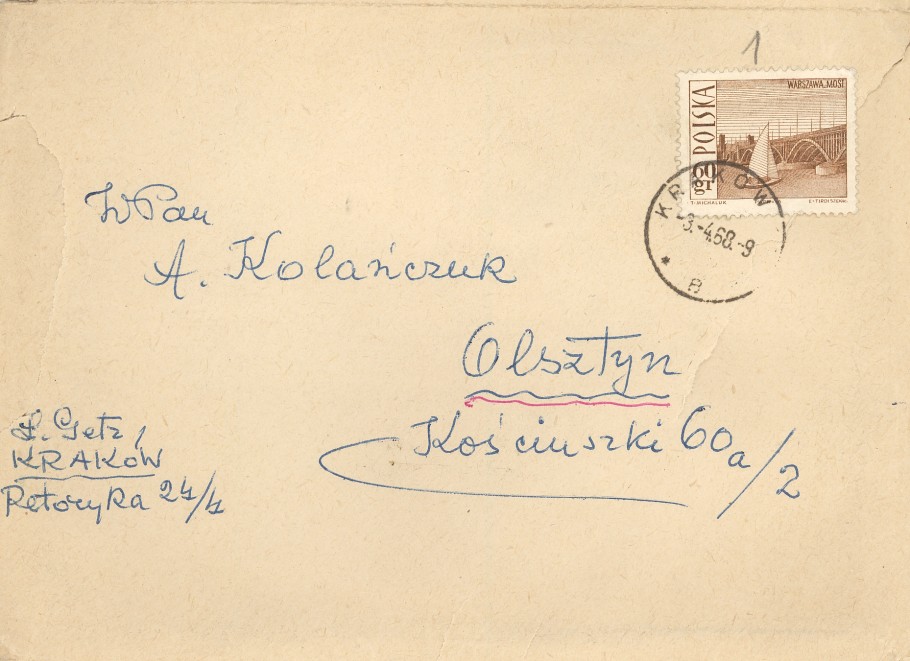 1
WARSZAWA.MOST
POLSKA
60 gr
T. MICHALUK
KRAKÓW
-3.-4.68.-9
* 8
WPan
A. Kolańczuk
Olsztyn
Kościuszki 60a/2
L. Getz,
KRAKÓW
Retoryka 24/4